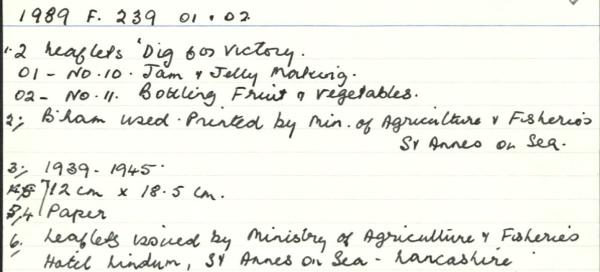 1989 F. 239 01 • 02
1. 2 Leaflets 'Dig for Victory.
01 - No. 10. Jam & Jelly Making.
02 - No. 11. Bottling Fruit & Vegetables.
2; B'ham used. Printed by Min. of Agriculture & Fisheries
St Annes on Sea.
3; 1939 - 1945.
12 cm x 18.5 cm.
4 Paper
6. Leaflets issued by Ministry of Agriculture & Fisheries
Hotel Lindum, St Annes on Sea - Lancashire